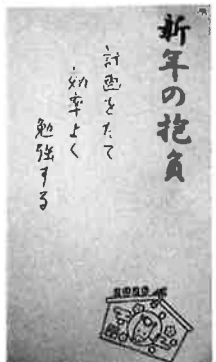 新年の抱負
計画をたて
効率よく
勉強する